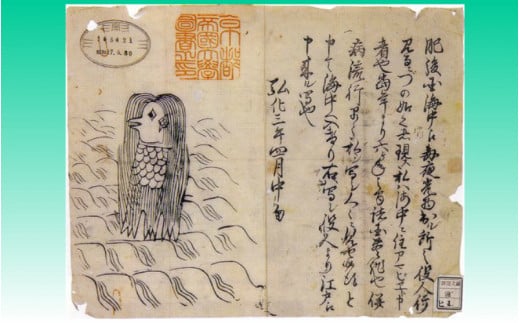 肥後国海中え毎夜光物出ル所之役人行
見るニづの如之者現ス私ハ海中ニ住アマビヱト申
者也当年より六ヶ年之間諸国豊作也併
病流行早々私シ写シ人々ニ見セ候得と
申て海中へ入けり右写シ役人より江戸え
申来ル写也
弘化三年四月中旬
京都
帝國大學
圖書之印